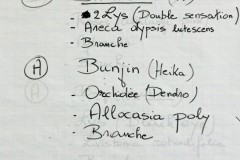 - 2 Lys (Double sensation)
- Areca dypsis lutescens
- Branche
(H) Bunjin (Heika)
- Orchidée (Dendro)
- Allocasia poly
- Branche